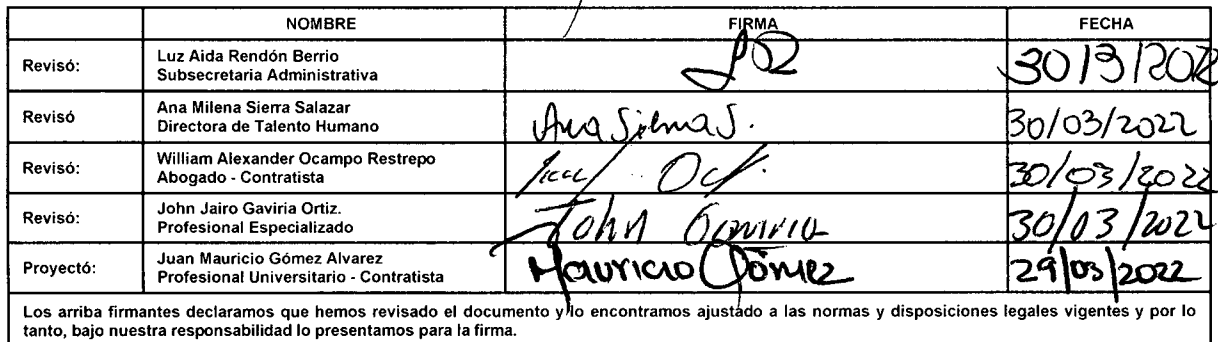 NOMBRE FIRMA FECHA
Revisó: Luz Aida Rendón Berrio
Subsecretaria Administrativa 30/3/202
Revisó Ana Milena Sierra Salazar
Directora de Talento Humano 30/03/2022
Revisó: William Alexander Ocampo Restrepo
Abogado - Contratista 30/03/2022
Revisó: John Jairo Gaviria Ortiz.
Profesional Especializado John Gaviria 30/03/2022
Proyectó: Juan Mauricio Gómez Alvarez
Profesional Universitario - Contratista Mauricio Gómez 29/03/2022
Los arriba firmantes declaramos que hemos revisado el documento y lo encontramos ajustado a las normas y disposiciones legales vigentes y por lo
tanto, bajo nuestra responsabilidad lo presentamos para la firma.